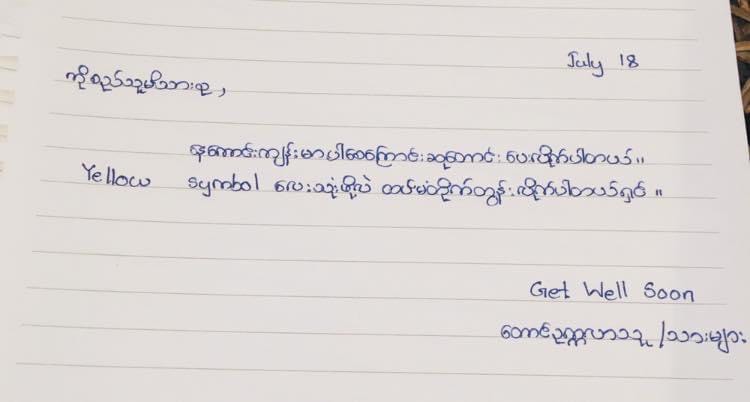 July 18
ကိုရည်သူမိသားစု,
နေကောင်းကျန်းမာပါစေကြောင်းဆုတောင်း ပေးလိုက်ပါတယ်။
Yellow symbol လေးသုံးဖို့လဲ တယ်မံတိုက်တွန်းလိုက်ပါတယ်ရှင်။
Get Well Soon
တောင်ဥက္ကလာသူ/သားများ